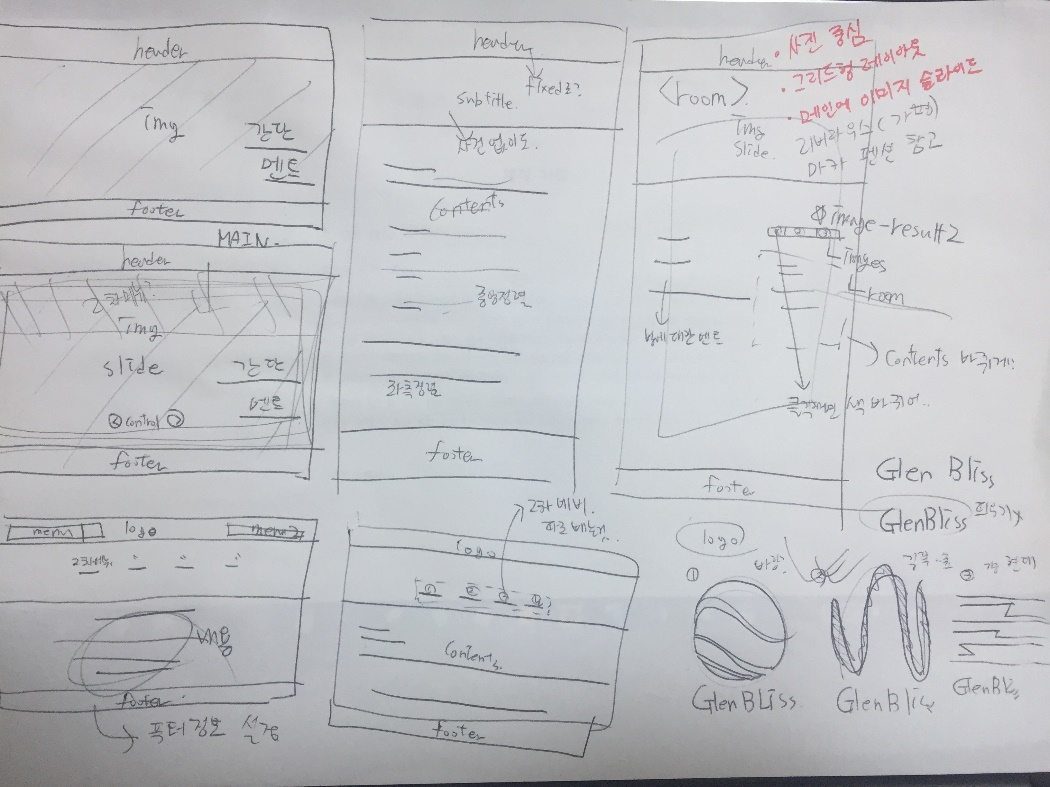 header
img
간단
멘트
footer
MAIN
header
2차메뉴?
img
slide
간단
멘트
control
footer
menu
logo
menu2
2차메뉴
내용
footer
푸터정보 설정
header
fixed로?
subtitle.
사진 없이도.
Contents
중앙정렬
좌측정렬
footer
2차 네비.
logo
Contents.
footer
header
<room>
img
slide.
· 사진 중심
· 그리드형 레이아웃
· 메인에 이미지 슬라이드
리버라윅스(가평)
마카 펜션 참고
image-result2
images
room
방에 대한 멘트
Contents 바뀌게!
색 바뀌어..
footer
Glen Bliss
GlenBliss
logo
①
바람?
②
③
GlenBLiss
GlenBliss
GlenBliss